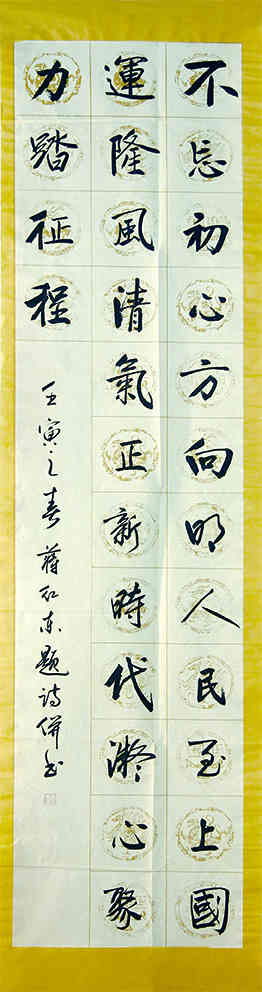 不忘初心方向明人民至上國
運隆風清氣正新時代凝心聚
力踏征程
壬寅之春蔣紅東題詩併書